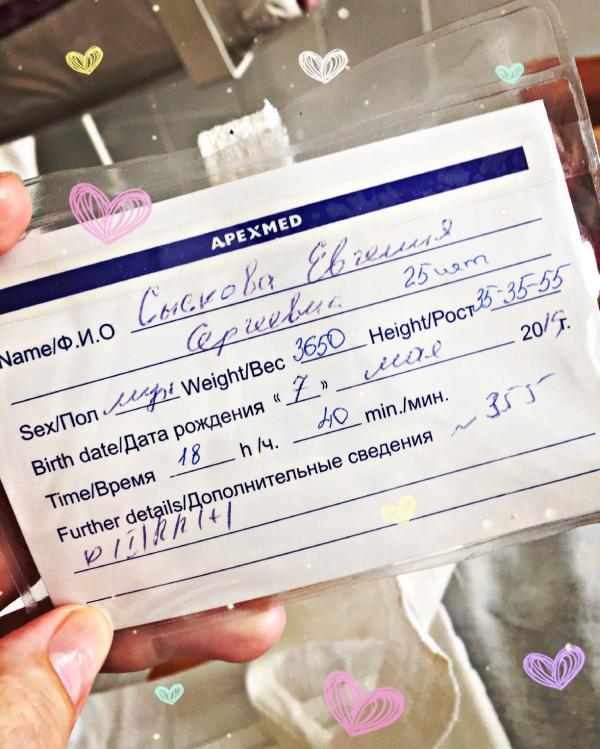 APEXMED
Name/Ф.И.О Сыскова Евгения
Сергеевна 25 лет
Sex/Пол муж Weight/Вес 3650 Height/Рост 35-35-55
Birth date/Дата рождения “ 7 ” мая 2015г.
Time/Время 18 h/ч. 40 min./мин.
Further details/Дополнительные сведения ~ 355